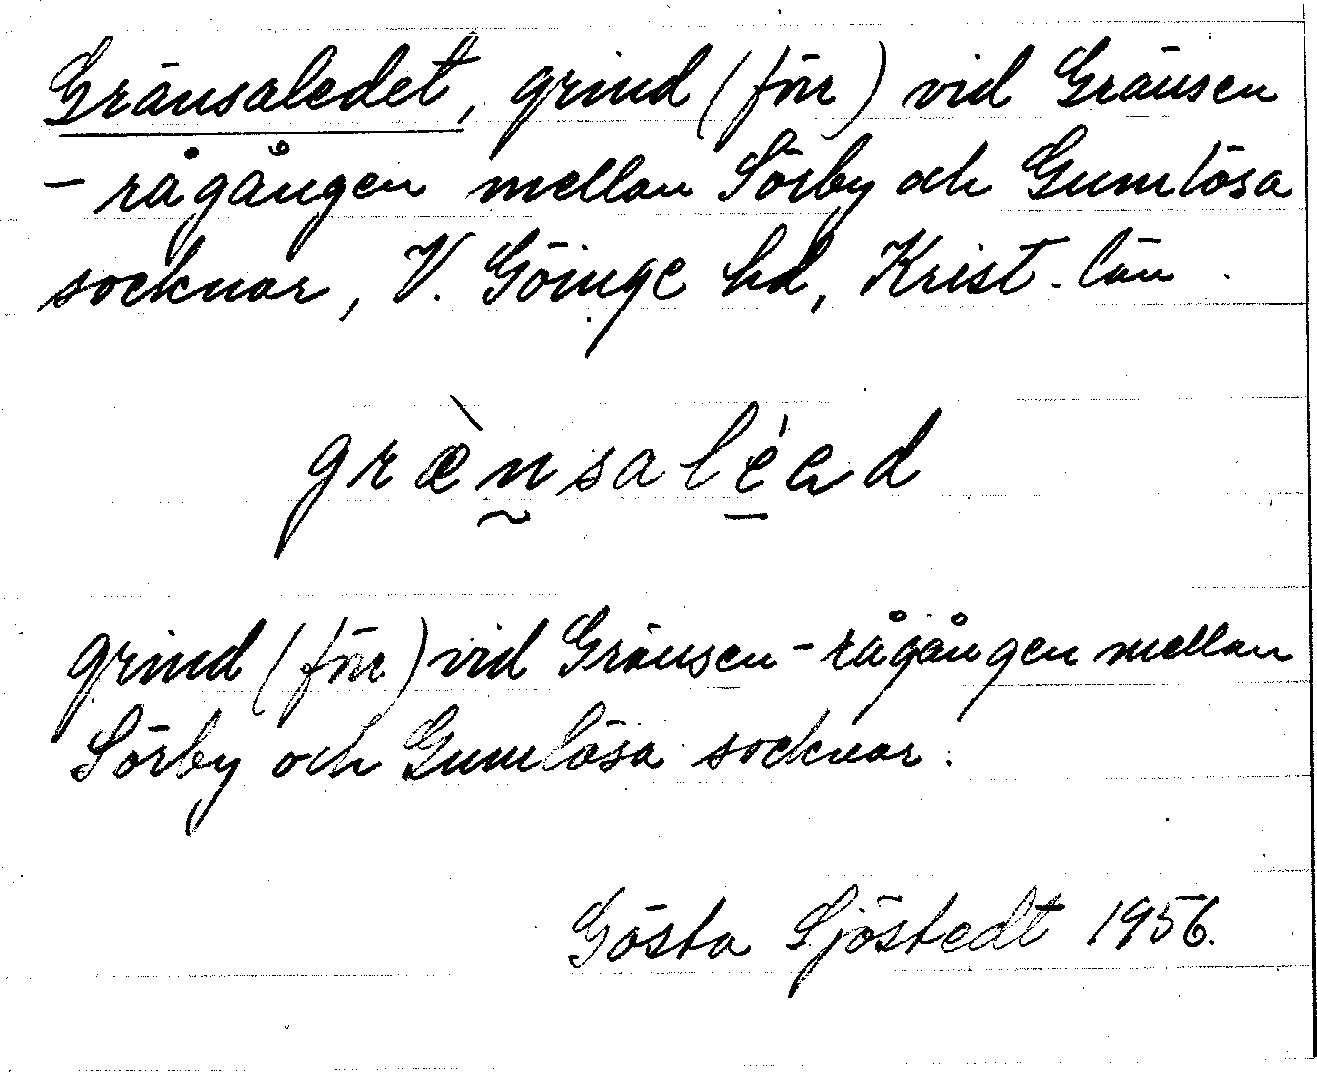 Gränsaledet, grind (förr) vid Gränsen
- rågången mellan Sörby och Gumlösa
socknar, V. Göinge hd, Krist. län.
græ̀nsaléad
grind (förr) vid Gränsen - rågången mellan
Sörby och Gumlösa socknar.
Gösta Sjöstedt 1956.